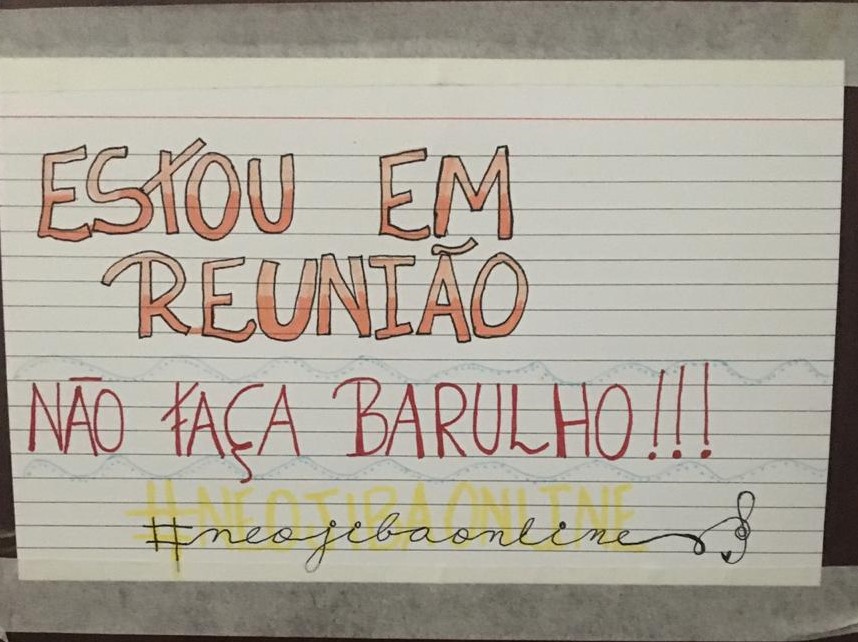 ESTOU EM
REUNIÃO
NÃO FAÇA BARULHO!!!
#NEOJIBAONLINE
#neojibaonline